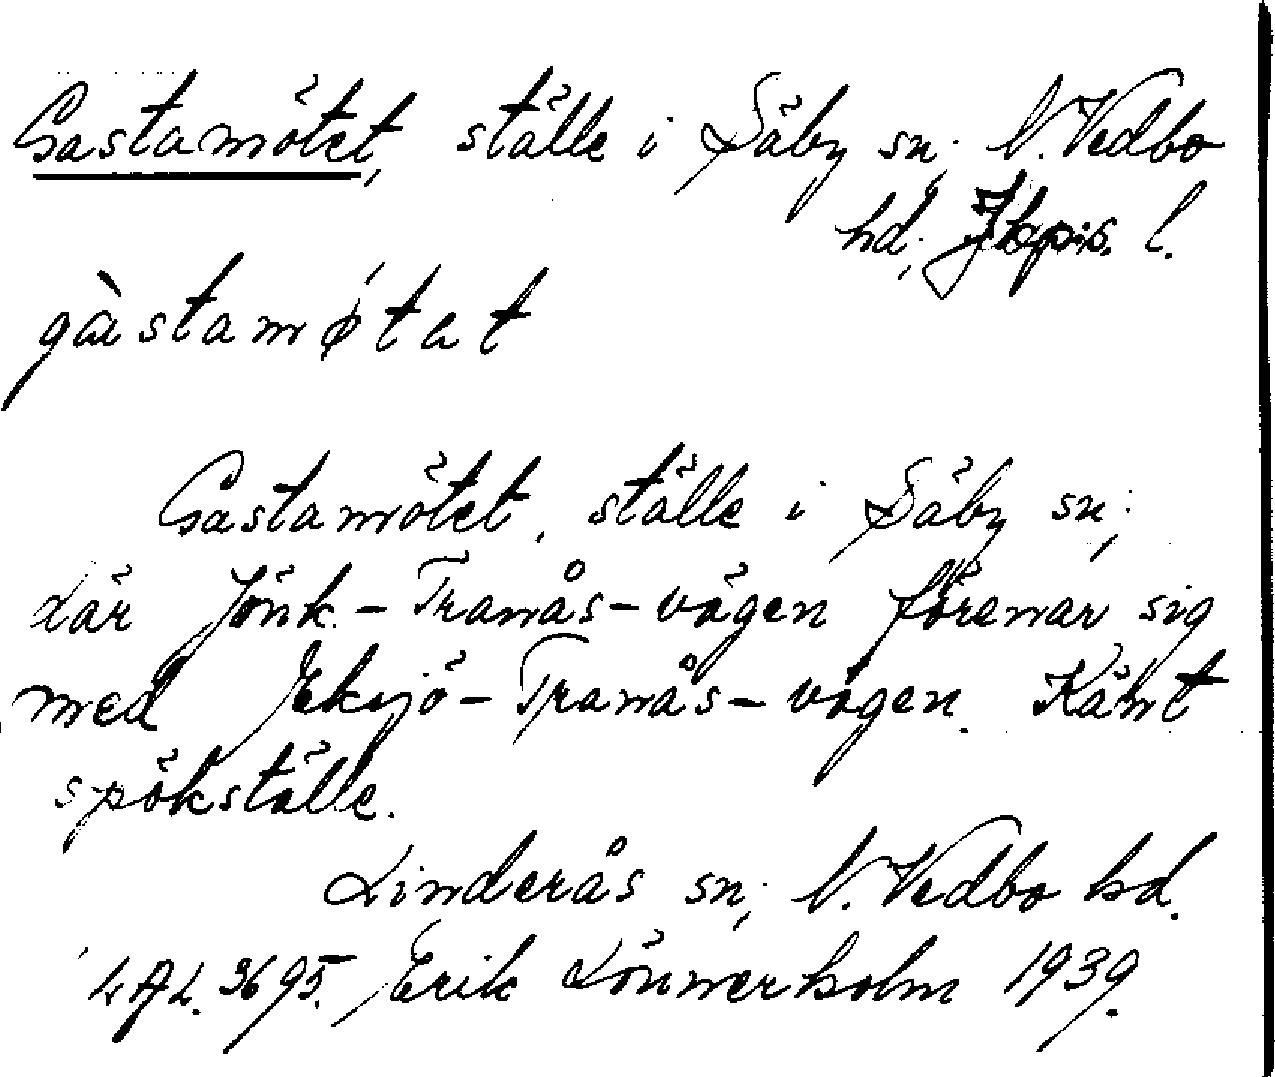 Gastamötet, ställe i Säby sn; N. Vedbo
hd; Jkpis. l.
gàstamøtat
Gastamötet, ställe i Säby sn;
där Jönk.-Tranås-vägen förenar sig
med Eksjö-Tranås-vägen. Känt
spökställe.
Linderås sn; N. Vedbo hd.
LAL. 3695. Erik Lönnerholm 1939.